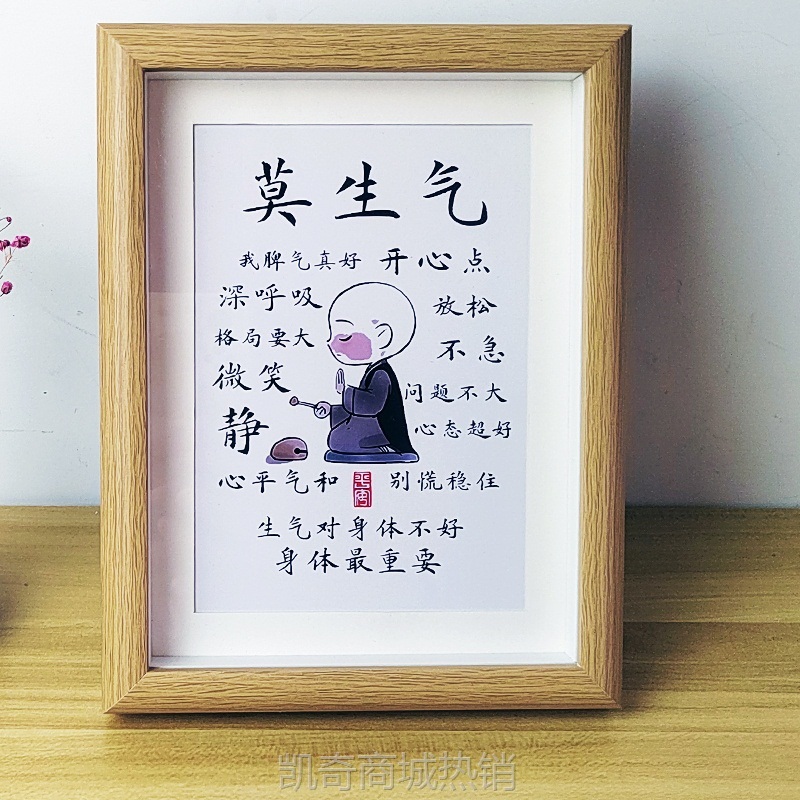 莫生气
我脾气真好 开心点
深呼吸
放松
格局要大
不急
微笑
问题不大
静
心态超好
心平气和
别慌稳住
生气对身体不好
身体最重要
凯奇商城热销